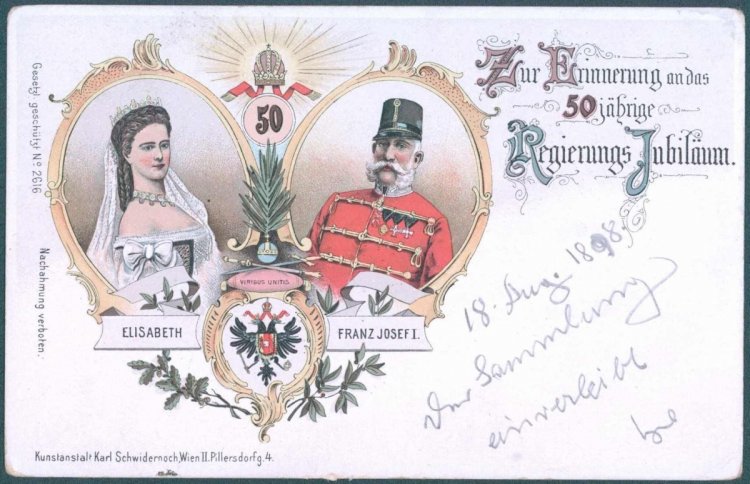 Zur Erinnerung an das
50 jährige
Regierungs Jubiläum.
50
VIRIBUS UNITIS
ELISABETH
FRANZ JOSEF I.
Gesetzl. geschützt No 2616
Nachahmung verboten.
18. Aug. 1898.
Der Sammlung
einverleibt
Kunstanstalt Karl Schwidernoch, Wien II. Pillersdorfg. 4.